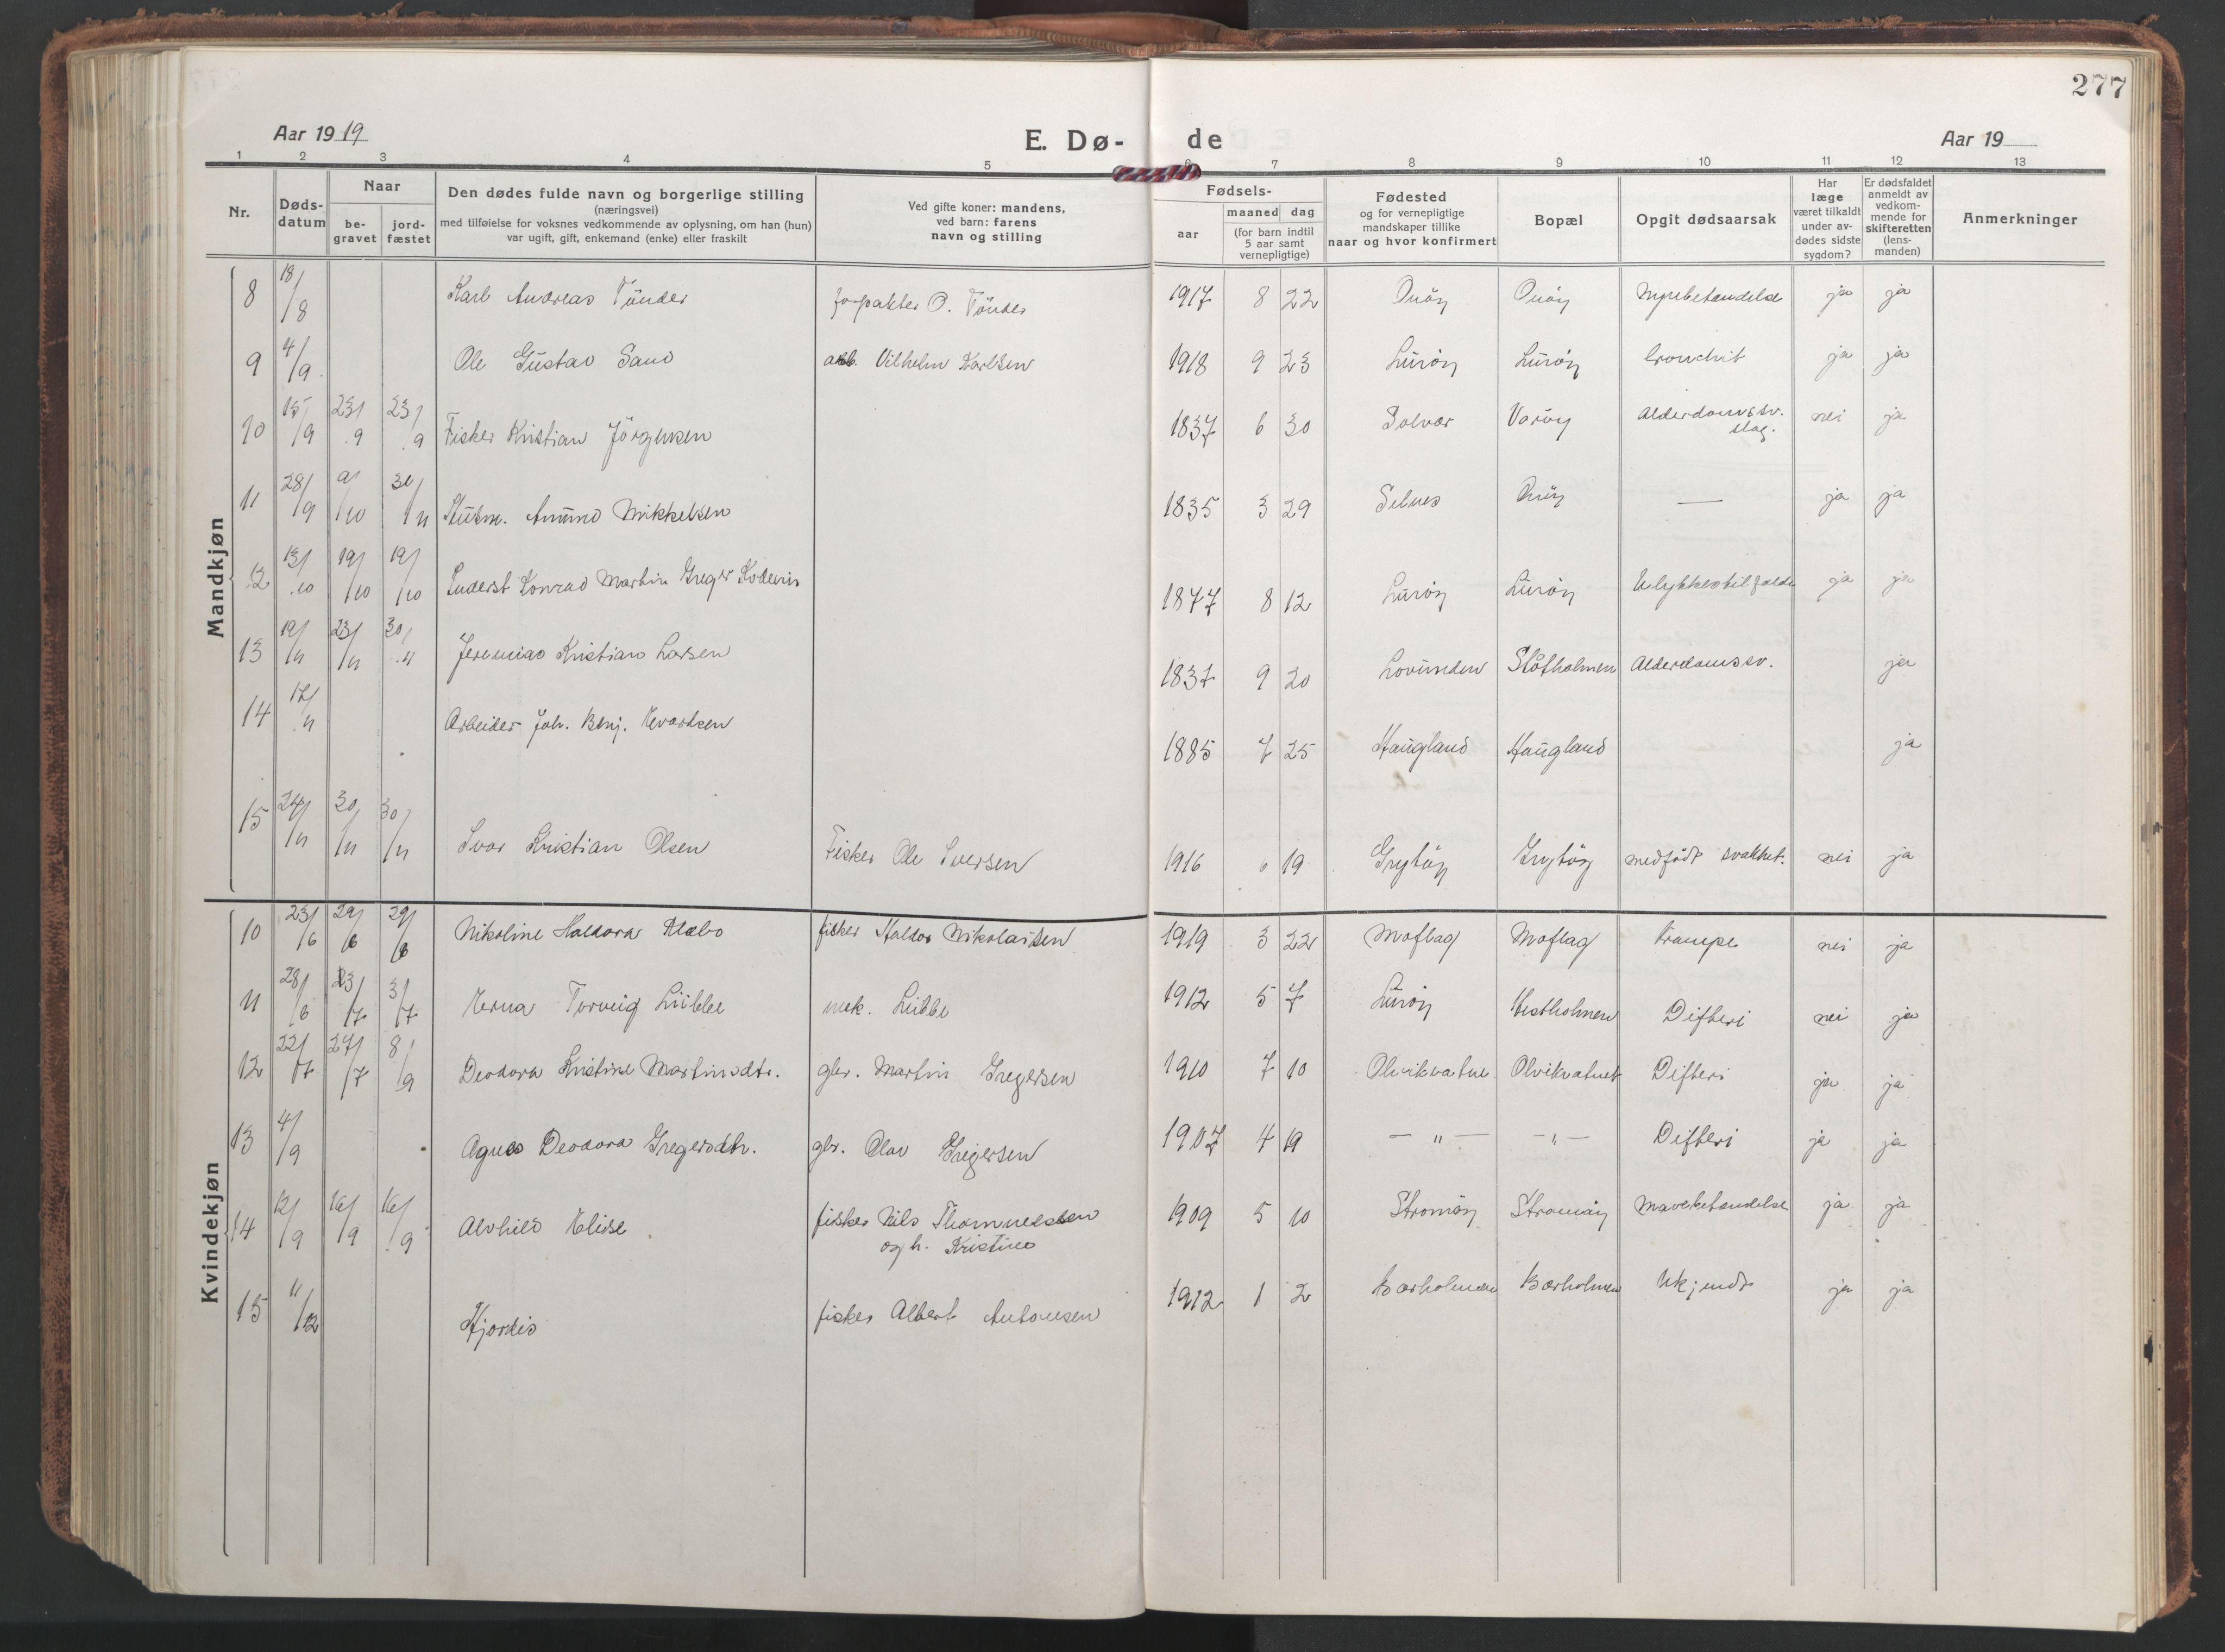 277
Aar 1919
E. Dø-
de
Aar 19
1 2 3 4 5 6 7 8 9 10 11 12 13
Nr.
Døds-
datum
Naar
be-
gravet
jord-
fæstet
Den dødes fulde navn og borgerlige stilling
(næringsvei)
med tilføielse for voksnes vedkommende av oplysning, om han (hun)
var ugift, gift, enkemand (enke) eller fraskilt
Ved gifte koner: mandens,
ved barn: farens
navn og stilling
Fødsels-
aar
maaned dag
(for barn indtil
5 aar samt
vernepligtige)
Fødested
og for vernepligtige
mandskaper tillike
naar og hvor konfirmert
Bopæl
Opgit dødsaarsak
Har
læge
været tilkaldt
under av-
dødes sidste
sygdom?
Er dødsfaldet
anmeldt av
vedkom-
mende for
skifteretten
(lens-
manden)
Anmerkninger
Mandkjøn
8 18/8 Karl Andreas Tönder forpakter O. Tönder 1917 8 22 Onöy Onöy ja ja
9 4/9 Ole Gustav Sand arb. Vilhelm Karlsen 1918 9 23 Luröy Luröy bronchit ja ja
10 15/9 23/9 23/9 Fisker Kristian Jörgensen 1837 6 30 Solvær Varöy Alderdomssv. nei ja
slag.
11 28/9 9/10 30/11 Amund Mikkelsen 1835 3 29 Selnes Onöy — ja ja
12 13/10 19/10 19/10 Konrad Martin Greger 1877 8 12 Luröy Luröy Ulykkestilfælde ja ja
13 19/11 23/11 30/11 Jeremias Kristian Larsen 1837 9 20 Lovunden Slotholmen Alderdomssv. ja
14 17/11 Arbeider Joh. Benj. Evartsen 1885 7 25 Haugland Haugland ja
15 24/11 30/11 30/11 Ivar Kristian Olsen Fisker Ole Iversen 1916 6 19 Grytöy Grytöy medfödt svakhet. nei ja
Kvindekjøn
10 23/6 29/6 29/6 Nikoline Haldora fisker Haldor Nikolaisen 1919 3 22 Moflag Moflag Krampe nei ja
11 28/6 3/7 3/7 Erna Torveig Lübbe mek. Lübbe 1912 5 7 Luröy Hestholmen Difteri nei ja
12 22/7 27/7 8/9 Deodora Kristine Martinsdtr. gbr. Martin Gregersen 1910 7 10 Olvikvatne Olvikvatnet Difteri ja ja
13 4/9 Agnes Deodora Gregersdtr. gbr. Olav Gregersen 1907 4 19 — " — — " — Difteri ja ja
14 12/9 16/9 16/9 Alvhild Elise fisker Nils Thommessen 1909 5 10 Stromöy Stromöy Mavebetændelse ja ja
og h. Kristine
15 11/12 Hjordis fisker Albert Antonsen 1912 1 2 Barholmen Barholmen Ukjendt ja ja